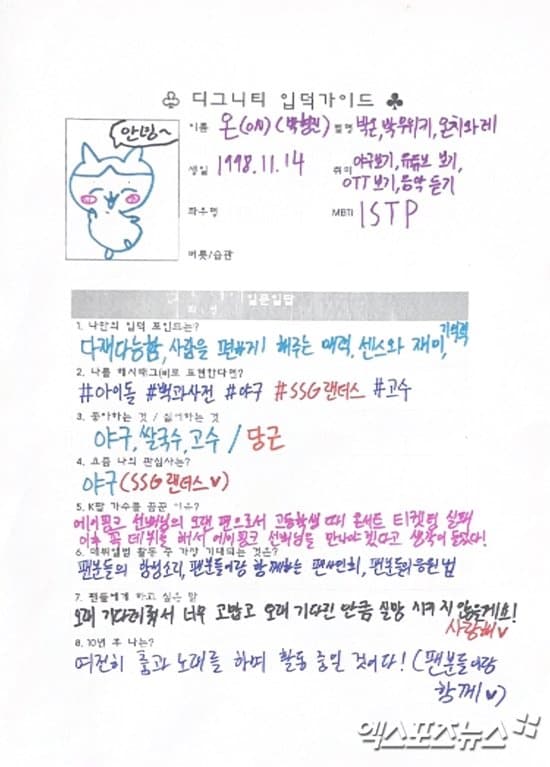 ♧ 디그니티 입덕가이드 ♣
안녕~
이름 온(ON)(박형진) 별명 박온, 박우위키, 온치와레
생일 1998.11.14 취미 야구보기, 유튜브 보기,
OTT 보기, 음악 듣기
좌우명 MBTI ISTP
버릇/습관
일문일답
1. 나만의 입덕 포인트는?
다재다능함, 사람을 편하게 해주는 매력, 센스와 재미, 기억력
2. 나를 해시태그(#)로 표현한다면?
#아이돌 #백과사전 #야구 #SSG랜더스 #고수
3. 좋아하는 것 / 싫어하는 것
야구, 쌀국수, 고수 / 당근
4. 요즘 나의 관심사는?
야구(SSG랜더스♥)
5. K팝 가수를 꿈꾼 이유?
에이핑크 선배님의 오랜 팬으로서 고등학생 때 콘서트 티켓팅 실패
이후 꼭 데뷔를 해서 에이핑크 선배님들을 만나야겠다고 생각이 들었다!
6. 데뷔앨범 활동 중 가장 기대되는 것은?
팬분들의 함성소리, 팬분들이랑 함께하는 팬사인회, 팬분들의 응원법
7. 팬들에게 하고 싶은 말
오래 기다려줘서 너무 고맙고 오래 기다린 만큼 실망 시키지 않을게요!
사랑해♥
8. 10년 후 나는?
여전히 춤과 노래를 하며 활동 중일 것이다! (팬분들이랑
함께♥)
엑스포츠뉴스